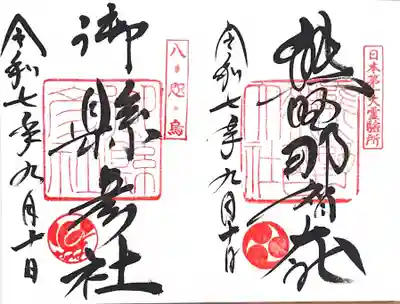 日本第一大霊験所
熊野那智大社
令和七年九月十日
八・咫・烏
御縣彦社
令和七年九月十日